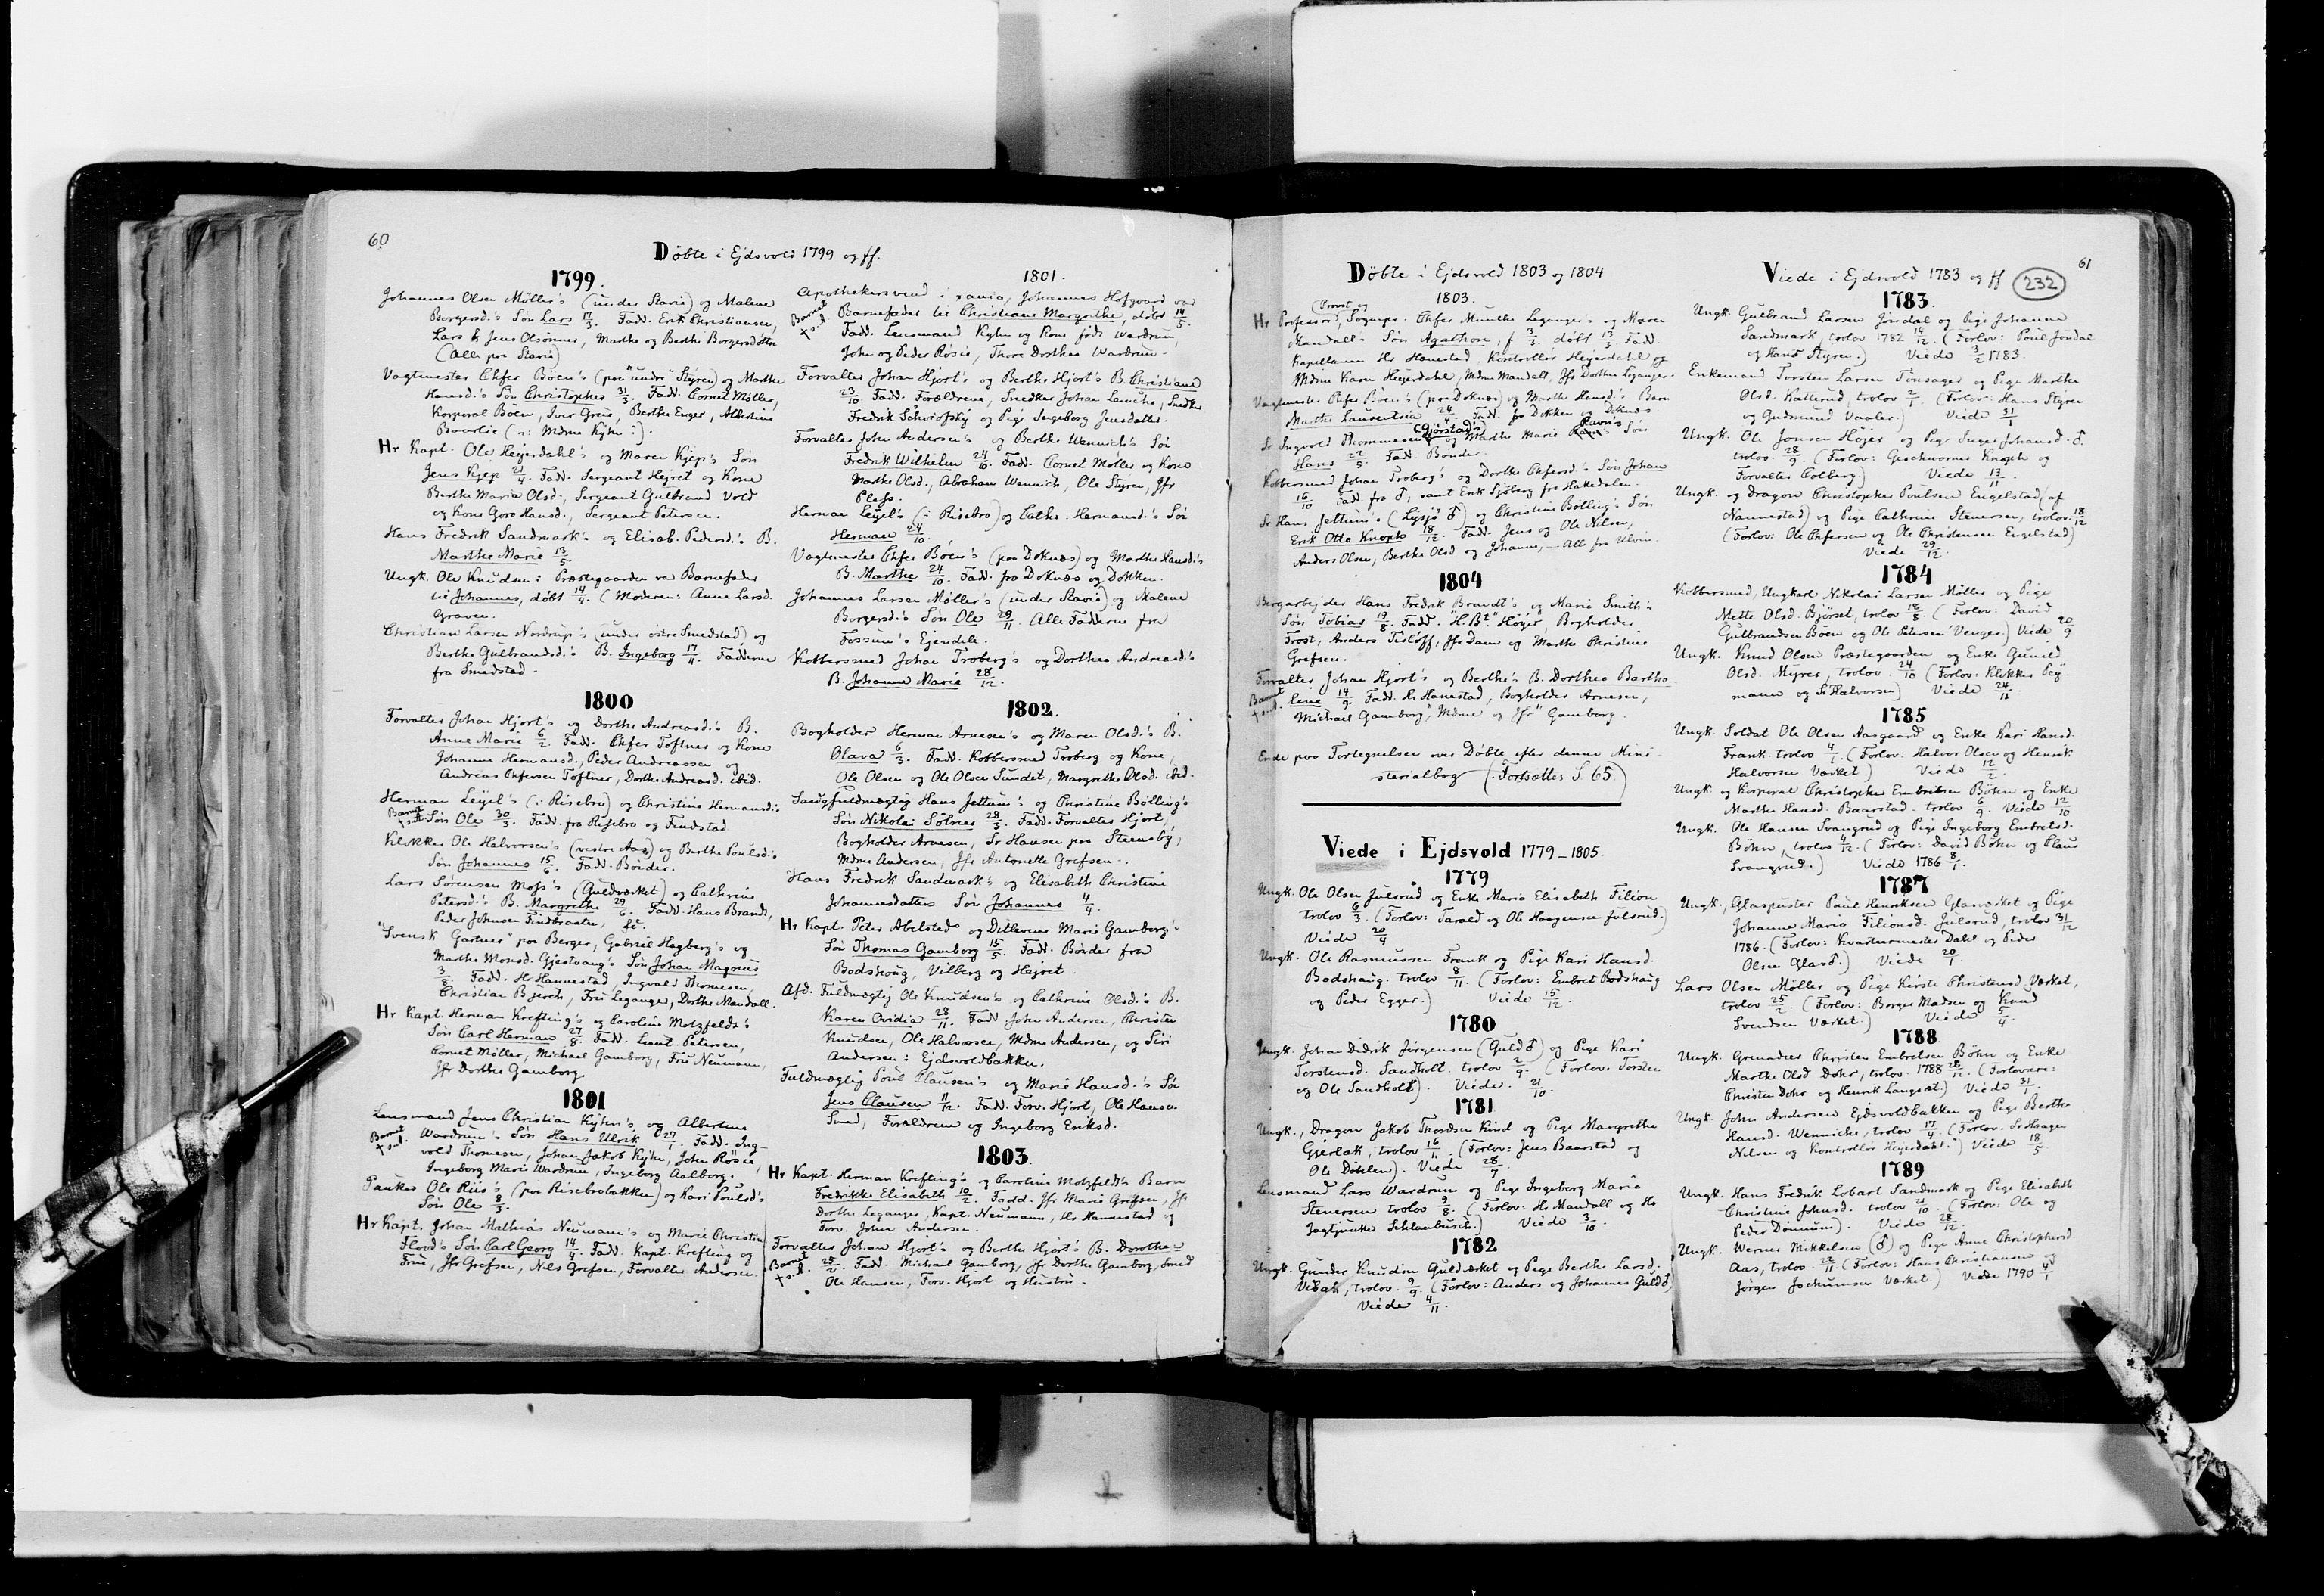 60
Döbte i Ejdsvold 1799 og ff.
1799.
Johannes Olsen Møller's (under Stavis) og Malene
Borgersd.'s Søn Lars 17/3. Fadd. Erik Christiansen,
Lars & Jens Olsønner, Marthe og Berthe Borgersdøttre
(Alle paa Stavis)
Vagtmester Chfer Böen's (paa "under" Styren) og Marthe
Hansd.'s Søn Christopher 31/3. Fadd. Cornet Møller,
Korporal Böen, Iver Greis, Berthe Enger, Albertine
Baarlie (ɔ: Mdme Kyhn:).
Hr Kapt. Ole Heyerdahl's og Maren Kjep's Søn
Jens Kjep 21/4. Fadd. Sergeant Hejret og Kone
Berthe Maria Olsd., Sergeant Gulbrand Vold
og Kone Goro Hansd., Sergeant Petersen.
Hans Fredrik Sandmark's og Elisab. Pedersd.'s B.
Marthe Marie 13/5.
Ungk. Ole Knudsen i Præstegaarden var Barnefader
til Johannes, døbt 14/4. (Moderen: Anne Larsd.
Graven.
Christian Larsen Nordrup's (under østre Smedstad) og
Berthe Gulbrandsd.'s B. Ingeborg 17/11. Fadderne
fra Smedstad.
1800
Forvalter Johan Hjort's og Dorthe Andreasd.'s B.
Anne Marie 6/2. Fadd. Chfer Toftner og Kone
Johanne Hermansd., Peder Andreassen og
Andreas Chfersen Toftner, Dorthe Andreasd. ibid.
Herman Leyel's (i Risebro) og Christine Hermansd.'s
Barnet + s.d. Søn Ole 30/3. Fadd. fra Risebro og Findstad
Klokker Ole Halvorsen's (vestre Aas) og Berthe Poulsd.'s
Søn Johannes 15/6. Fadd. Bønder.
Lars Sørensen Moss's (Guldværket) og Cathrine
Petersd.'s B. Margrethe 29/6. Fadd. Hans Brandt,
Peder Johnsen Findbraaten, &c.
"Svensk Gartner" paa Berger, Gabriel Hagberg's og
Marthe Monsd. Gjestvang's Søn Johan Magnus
3/8. Fadd. Hr Hannestad, Ingvald Thomesen,
Christian Bjerch, Fru Leganger, Dorthe Mandall.
Hr Kapt. Herman Krefting's og Caroline Motzfeldt's
Søn Carl Herman 27/8. Fadd. Leeut. Petersen,
Cornet Møller, Michael Gamborg, Fru Neumann,
Jfr Dorthe Gamborg.
1801
Lensmand Jens Christian Kyhn's og Albertine
Barnet + s.d. Wardrum's Søn Hans Ulrik 27/1. Fadd. Ing-
vold Thomesen, Johan Jakob Kyhn, John Röise,
Ingeborg Marie Wardrum, Ingeborg Aalborg.
Pauker Ole Riis's (paa Risebrobakken) og Kari Poulsd.'s
Søn Ole 8/3.
Hr Kapt. Johan Mathias Neumann's og Marie Christine
Flood's Søn Carl Georg 14/4. Fadd. Kapt. Krefting og
Frue, Jfr Grefsen, Nils Grefsen, Forvalter Andersen.
1801.
Apothekersvend i xania, Johannes Hofgaard var
Barnet + s.d. Barnefader til Christiane Margrethe, døbt 14/5.
Fadd. Lensmand Kyhn og Kone født Wardrum,
John og Peder Röise, Thore Dorthea Wardrum.
Forvalter Johan Hjort's og Berthe Hjort's B. Christiane
23/10. Fadd. Forældrene, Snedker Johan Lemche, Snedker
Fredrik Schviofsky og Pige Ingeborg Jensdatter.
Forvalter John Andersen's og Berthe Wennich's Søn
Fredrik Wilhelm 24/10. Fadd. Cornet Møller og Kone
Marthe Olsd., Abraham Wennich, Ole Styren, Jfr
Pless.
Herman Leyel's (i Risebro) og Cathr. Hermansd.'s Søn
Herman 24/10.
Vagtmester Chfer Böen's (paa Doknæs) og Marthe Hansd.'s
B. Marthe 24/10. Fadd. fra Doknæs og Dokken.
Johannes Larsen Møller's (under Stavis) og Malene
Borgersd.'s Søn Ole 29/11. Alle Fadderne fra
Fossum's Ejendele.
Kobbersmed Johan Troberg's og Dorthea Andreasd.'s
B. Johanne Marie 28/12.
1802.
Bogholder Herman Arnesen's og Maren Olsd.'s B.
Olava 6/3. Fadd. Kobbersmed Troberg og Kone,
Ole Olsen og Ole Olsen Sundet, Margrethe Olsd. ibid.
Saugfuldmægtig Hans Jettum's og Christine Bölling's
Søn Nikolai Sölner 28/3. Fadd. Forvalter Hjort,
Bogholder Arnesen, Sr Hansen paa Steensby,
Mdme Andersen, Jfr Antonette Grefsen.
Hans Fredrik Sandmark's og Elisabeth Christine
Johannesdatters Søn Johannes 4/4.
Hr Kapt. Peter Abelsted's og Ditlevine Marie Gamborg's
Søn Thomas Gamborg 15/5. Fadd. Bönder fra
Bodshaug, Vilberg og Hejret.
Afd. Fuldmægtig Ole Knudsen's og Cathrine Olsd.'s B.
Karen Ovidia 28/11. Fadd. John Andersen, Christen
Knudsen, Ole Halvorsen, Mdme Andersen, og Siri
Andersen i Ejdsvoldbakken.
Fuldmægtig Poul Clausen's og Marie Hansd.'s Søn
Jens Clausen 11/12. Fadd. Forv. Hjort, Ole Hansen
Smed, Forældrene og Ingeborg Eriksd.
1803
Hr Kapt. Herman Krefting's og Caroline Motzfeldt's Barn
Fredrikke Elisabeth 10/2. Fadd. Jfr Marie Grefsen, Jfr
Dorthe Leganger, Kapt. Neumann, Hr Hannestad og
Forv. John Andersen.
Forvalter Johan Hjort's og Berthe Hjort's B. Dorothea
Barnet + s.d. 25/2. Fadd. Michael Gamborg, Jfr Dorthe Gamborg, Smed
Ole Hansen, Forv. Hjort og Hustru.
Döbte i Ejdsvold 1803 og 1804
1803.
(Provst og
Hr Professor), Sognepr. Chfer Munthe Leganger's og Maren
Mandall's Søn Agathon, f 3/3, døbt 13/3. Fadd.
Kapellanen Hr Hanestad, Kontrollør Heyerdahl og
Mdme Karen Heyerdahl, Mdme Mandall, Jfr Dorthea Leganger.
Vagtmester Chfer Böen's (paa Doknæs) og Marthe Hansd.'s Barn
Marthe Laurentsia 24/4. Fadd. fra Dokken og Doknæs.
Sr Ingvold Thommesen (Gjörstad's) og Marthe Marie Ravn's Søn
Hans 22/5. Fadd. Bönder.
Kobbersmed Johan Troberg's og Dorthe Chfersd.'s Søn Johan
16/10. Fadd. fra ♂, samt Erik Sjöberg fra Hakedalen.
Sr Hans Jettum's (Lysjö ♂) og Christine Bölling's Søn
Erik Otto Knoph 18/12. Fadd. Jens og Ole Nilsen,
Anders Olsen, Berthe Olsd og Johanne, — Alle fra Ulvin.
1804
Bergarbejder Hans Fredrik Brandt's og Marie Smith's
Søn Tobias 19/8. Fadd. "H. Bz." Höyer, Bogholder
Frost, Anders Tisløff, Jfr Dam og Marthe Christine
Grefsen.
Forvalter Johan Hjort's og Berthe's B. Dorthea Bartho-
Barnet + s.d. line 14/9. Fadd. Hr Hanestad, Bogholder Arnesen,
Michael Gamborg, "Mdme og Jfr" Gamborg.
Ende paa Fortegnelsen over Döbte efter denne Mini-
sterialbog (Fortsættes S. 65.)
Viede i Ejdsvold 1779–1805.
1779
Ungk. Ole Olsen Julsrud og Enke Maria Elisabeth Filion
trolov 6/3. (Forlov: Tarald og Ole Haagensen Julsrud.)
Viede 20/4
Ungk. Ole Rasmussen Frank og Pige Kari Hansd.
Bodshaug. trolov 8/11. (Forlov: Embret Bodshaug
og Peder Egger.) Viede 15/12.
1780
Ungk. Johan Didrik Jørgensen (Guld♂) og Pige Kari
Torstensd. Sandholt. trolov 2/9. (Forlov. Torsten
og Ole Sandholt). Viede. 21/10.
1781
Ungk., Dragon Jakob Thordsen Rind og Pige Margrethe
Gjerlak, trolov 16/1. (Forlov: Jens Baarstad og
Ole Döhlen). Viede 28/7.
Lensmand Lars Wardrum og Pige Ingeborg Maria
Stenersen trolov 9/8. (Forlov: Hr Mandall og Hr
Jagtjunker Schlanbusch.) Viede 3/10.
1782
Ungk. Gunder Knudsen Guldværket og Pige Berthe Larsd.
Vibak, trolov. 9/9. (Forlov: Anders og Johannes Guld♂)
Viede 4/11.
61
Viede i Ejdsvold 1783 og ff
232
1783.
Ungk. Gulbrand Larsen Jöndal og Pige Johanne
Sandmark, trolov 1782 14/12. (Forlov: Poul Jöndal
og Hans Styren.) Viede 3/2 1783.
Enkemand Torsten Larsen Tönsager og Pige Marthe
Olsd. Hatterud, trolov 2/1. (Forlov: Hans Styren
og Gudmund Vaaler.) Viede 31/1
Ungk. Ole Jonsen Höjer og Pige Inger Johansd. ♂.
trolov. 28/9. (Forlov: Geschworner Knoph og
Forvalter Colberg.) Viede 13/11.
Ungk. og Dragon Christopher Poulsen Engelstad (af
Nannestad) og Pige Cathrine Stenersen, trolov. 18/12
(Forlov: Ole Chfersen og Ole Christensen Engelstad)
Viede 29/12.
1784
Kobbersmed, Ungkarl Nikolai Larsen Møller og Pige
Mette Olsd. Bjørset, trolov 18/8. (Forlov: David
Gulbrandsen Böen og Ole Petersen Venger.) Viede 20/9
Ungk. Knud Olsen Præstegaarden og Enke Gunild
Olsd. Myrer, trolov. 24/10 (Forlov: Klokker Ley
mann og Sr Halvorsen) Viede 24/11.
1785
Ungk. Soldat Ole Olsen Aasgaard og Enke Kari Hansd.
Frank trolov 4/1. (Forlov: Halvor Olsen og Henrik
Halvorsen Værket.) Viede 12/2.
Ungk og Korporal Christopher Embretsen Böhn og Enke
Marthe Hansd. Baarstad. trolov 6/9. Viede 12/10
Ungk. Ole Hansen Svangrud og Pige Ingeborg Embretsd.
Böhn, trolov 4/12. (Forlov: David Böhn og Claus
Svangrud.) Viede 1786 8/1.
1787
Ungk., Glaspuster Poul Henriksen Glasværket og Pige
Johanne Maria Filionsd. Julsrud, trolov 31/12
1786. (Forlov: Kvartermester Dahl og Peder
Olsen Glas♂.) Viede 20/1.
Lars Olsen Møller og Pige Kirste Christensd. Værket,
trolov 25/2. (Forlov: Borger Madsen og Knud
Svendsen Værket.) Viede 5/4.
1788
Ungk. Grenadeer Christen Embretsen Böhn og Enke
Marthe Olsd Dohr, trolov. 1788 28/12. (Forlovere:
Christen Dohr og Henrik Langset.) Viede 31/1.
Ungk. John Andersen Ejdsvoldbakken og Pige Berthe
Hansd. Wennicke, trolov 17/4. (Forlov. Sr Haagen
Nilsen og Kontrollør Heyerdahl.) Viede 18/5
1789
Ungk. Hans Fredrik Lobart Sandmark og Pige Elisabeth
Christine Johnsd. trolov 21/10. (Forlov: Ole og
Peder Dönnum). Viede 28/12.
Ungk. Werner Mikkelsen (♂) og Pige Anne Christophersd.
Aas, trolov. 22/11. (Forlov: Hans Christiansen og
Jørgen Jochumsen Værket.) Viede 1790 4/1